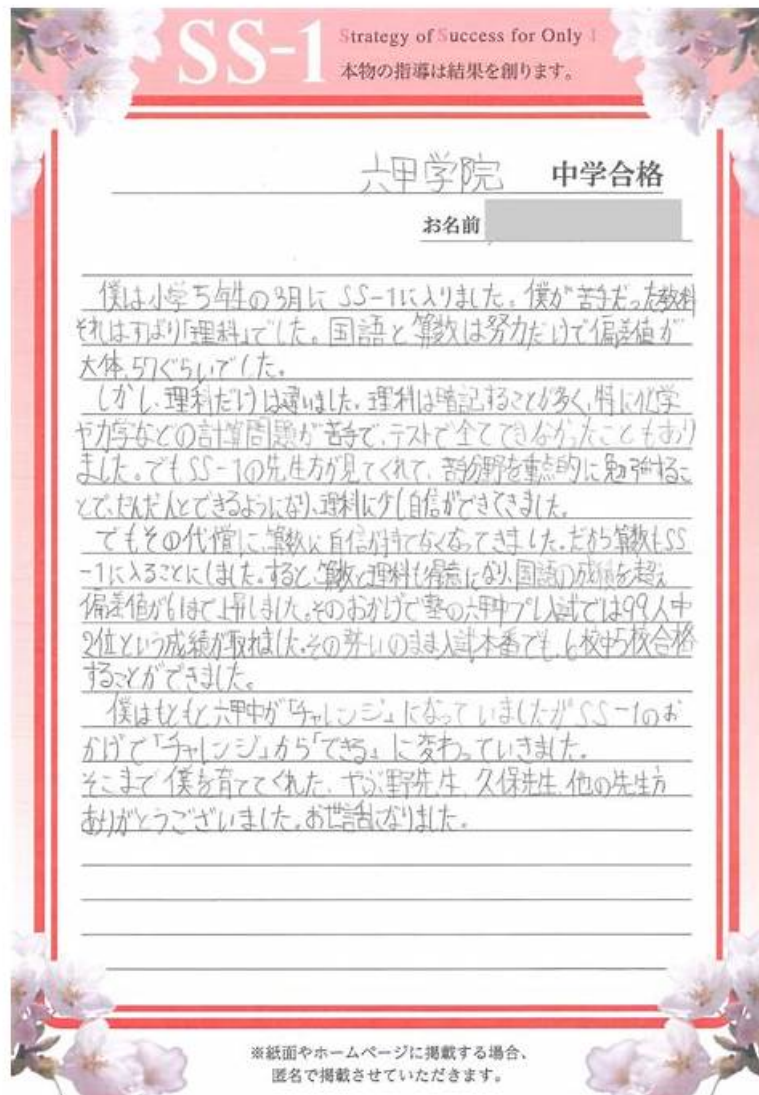 SS-1 Strategy of Success for Only 1
本物の指導は結果を創ります。
六甲学院 中学合格
お名前
僕は小学5年生の3月にSS-1に入りました。僕が苦手だった教科
それはずばり「理科」でした。国語と算数は努力だけで偏差値が
大体57ぐらいでした。
しかし、理科だけは違いました。理科は暗記することが多く、特に化学
や力学などの計算問題が苦手で、テストで全てできなかったこともあり
ました。でもSS-1の先生方が見てくれて、苦手分野を重点的に勉強するこ
とで、だんだんとできるようになり、理科に少し自信ができてきました。
でもその代償に、算数に自信が持てなくなってきました。だから算数もSS
-1に入ることにしました。すると、算数と理科も得意になり、国語の成績を超え
偏差値が61まで上昇しました。そのおかげで塾の六甲中プレ入試では99人中
2位という成績が取れました。その勢いのまま入試本番でも、6校中5校合格
することができました。
僕はもともと六甲中が「チャレンジ」になっていましたがSS-1のお
かげで「チャレンジ」から「できる」に変わっていきました。
そこまで僕を育ててくれた、やぶ野先生、久保先生、他の先生方
ありがとうございました。お世話になりました。
※紙面やホームページに掲載する場合、
匿名で掲載させていただきます。